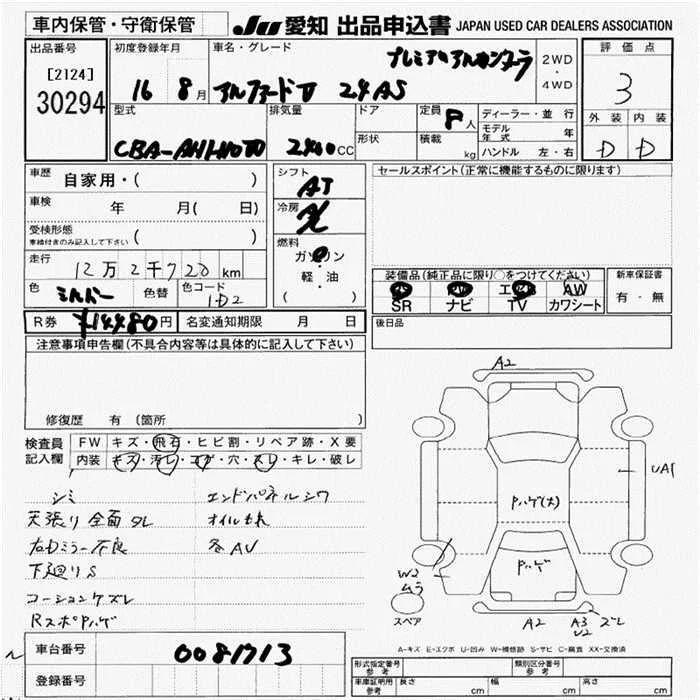 車内保管・守衛保管
JU 愛知 出品申込書 JAPAN USED CAR DEALERS ASSOCIATION
出品番号
[2124]
30294
初度登録年月
16 8月
車名・グレード
アルファードV 24AS
2WD
・
4WD
評価点
3
外装 内装
D D
型式
CBA-ANH10
排気量
2400CC
ドア
形状
定員 8人
積載 kg
ディーラー・並行
モデル年式 年
ハンドル 左・右
車歴
自家用・( )
車検 年 月( 日)
受検形態
車検付きのみ記入して下さい ( )
走行
12万2千720km
色 シルバー 色替
色コード 1D2
シフト AT
冷房 AC
燃料
ガソリン
・
軽・油
( )
セールスポイント(正常に機能するものに限ります)
装備品(純正品に限り○をつけてください)
PS PW エアB AW
SR ナビ TV カワシート
新車保証書
有・無
後日品
R券 ¥14480円 名変通知期限 月 日
注意事項申告欄(不具合内容等は具体的に記入して下さい)
修復歴 有(箇所 )
検査員記入欄
FW キズ・飛石・ヒビ割・リペア跡・X要
内装 キズ・汚レ・コゲ・穴・スレ・キレ・破レ
シミ エンドパネルシワ
天張り全面タレ オイルもれ
右Dミラー不良 各AU
下廻りS
コーションケズレ
RスポPハゲ
A2
UA1
Pハゲ(大)
Pハゲ
W2
ムラ
スペア
A2 A3 ズレ
U2
A-キズ E-エクボ U-凹み W-補修跡 S-サビ C-腐食 XX-交換済
車台番号 0081713
登録番号
形式指定番号
参考
類別区分番号
参考
車庫証明用
参考
長さ cm 幅 cm 高さ cm